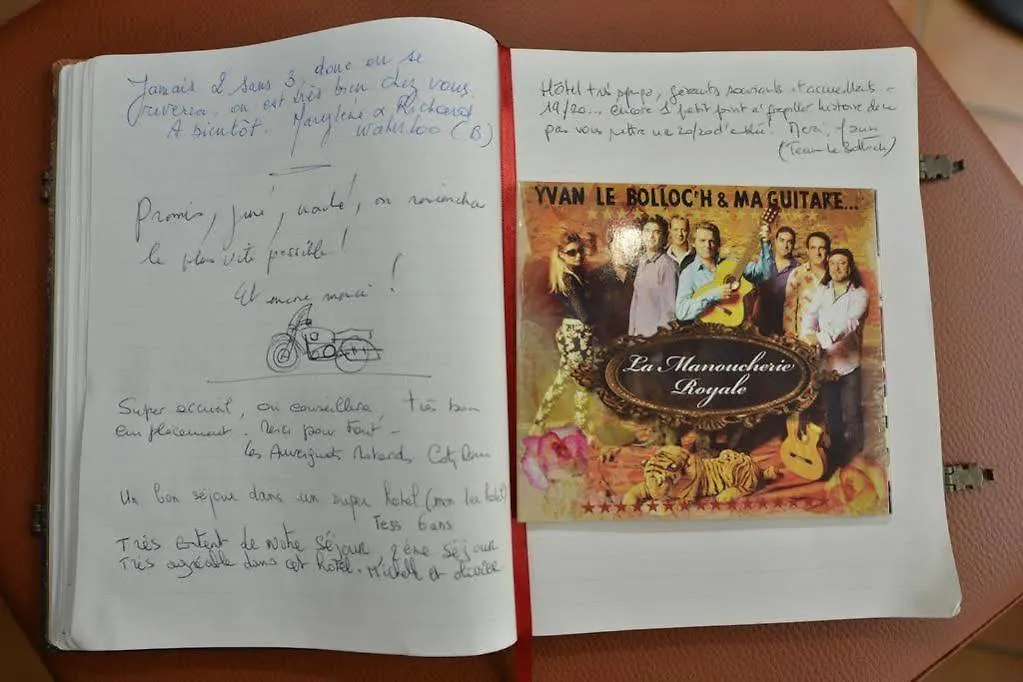 Jamais 2 sans 3, donc on se
on est très bien chez vous.
A bientôt. Marylène & Richard
Waterloo (B)
Promis, juré, on reviendra
le plus vite possible !
Et encore merci !
Super accueil, on conseillera, très bon
emplacement. Merci pour tout -
Les Auvergnats Motards
Un bon séjour dans un super hotel (mon 1er hotel)
Tess 6 ans
Très content de notre séjour, 2ème séjour
très agréable dans cet hotel. Michelle et Olivier
Hôtel très sympa, gérants souriants et accueillants -
19/20... encore 1 petit point à histoire de ne
pas vous mettre un 20/20 d'emblée. Merci.
(Team Le Bolloch)
YVAN LE BOLLOC'H & MA GUITARE...
La Manoucherie
Royale